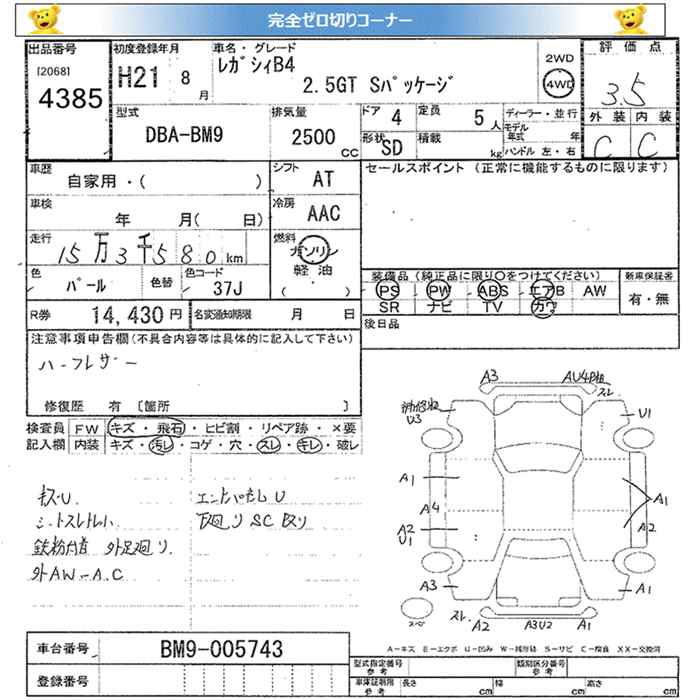 完全ゼロ切りコーナー
出品番号 初度登録年月 車名・グレード 2WD 評価点
[2068] H21 8月 レガシィB4 4WD 3.5
4385 2.5GT Sパッケージ
外装 内装
C C
型式 排気量 ドア 4 定員 5人 ディーラー・並行
DBA-BM9 2500cc 形状 SD 積載 kg モデル年式 年
ハンドル 左・右
車歴 シフト セールスポイント (正常に機能するものに限ります)
自家用・( ) AT
車検 冷房
年 月( 日) AAC
走行 燃料
15万3千580km ガソリン
軽油
( )
色 色替 色コード 装備品 (純正品に限り○をつけてください) 新車保証書
パール 37J PS PW ABS エアB AW 有・無
SR ナビ TV カワ
R券 14,430円 名変通知期限 月 日 後日品
注意事項申告欄 (不具合内容等は具体的に記入して下さい)
ハーフレザー
修復歴 有 [箇所 ]
検査員 FW キズ・飛石・ヒビ割・リペア跡・×要
記入欄 内装 キズ・汚レ・コゲ・穴・スレ・キレ・破レ
キズU エンドパネルU
シートスレ 下廻りSC又リ
鉄粉付着 外足廻り
外AW-A.C
A3 AU4
スレ
U3 U1
A1 A1
A4
A2 A2
U1
A3 A1
スレ
スペ A2 A3U2 A1
A－キズ E－エクボ U－凹み S－サビ C－腐食 XX－交換済
車台番号 BM9-005743
登録番号
型式指定番号 参考 類別区分番号 参考
車庫証明用 参考 長さ cm 幅 cm 高さ cm